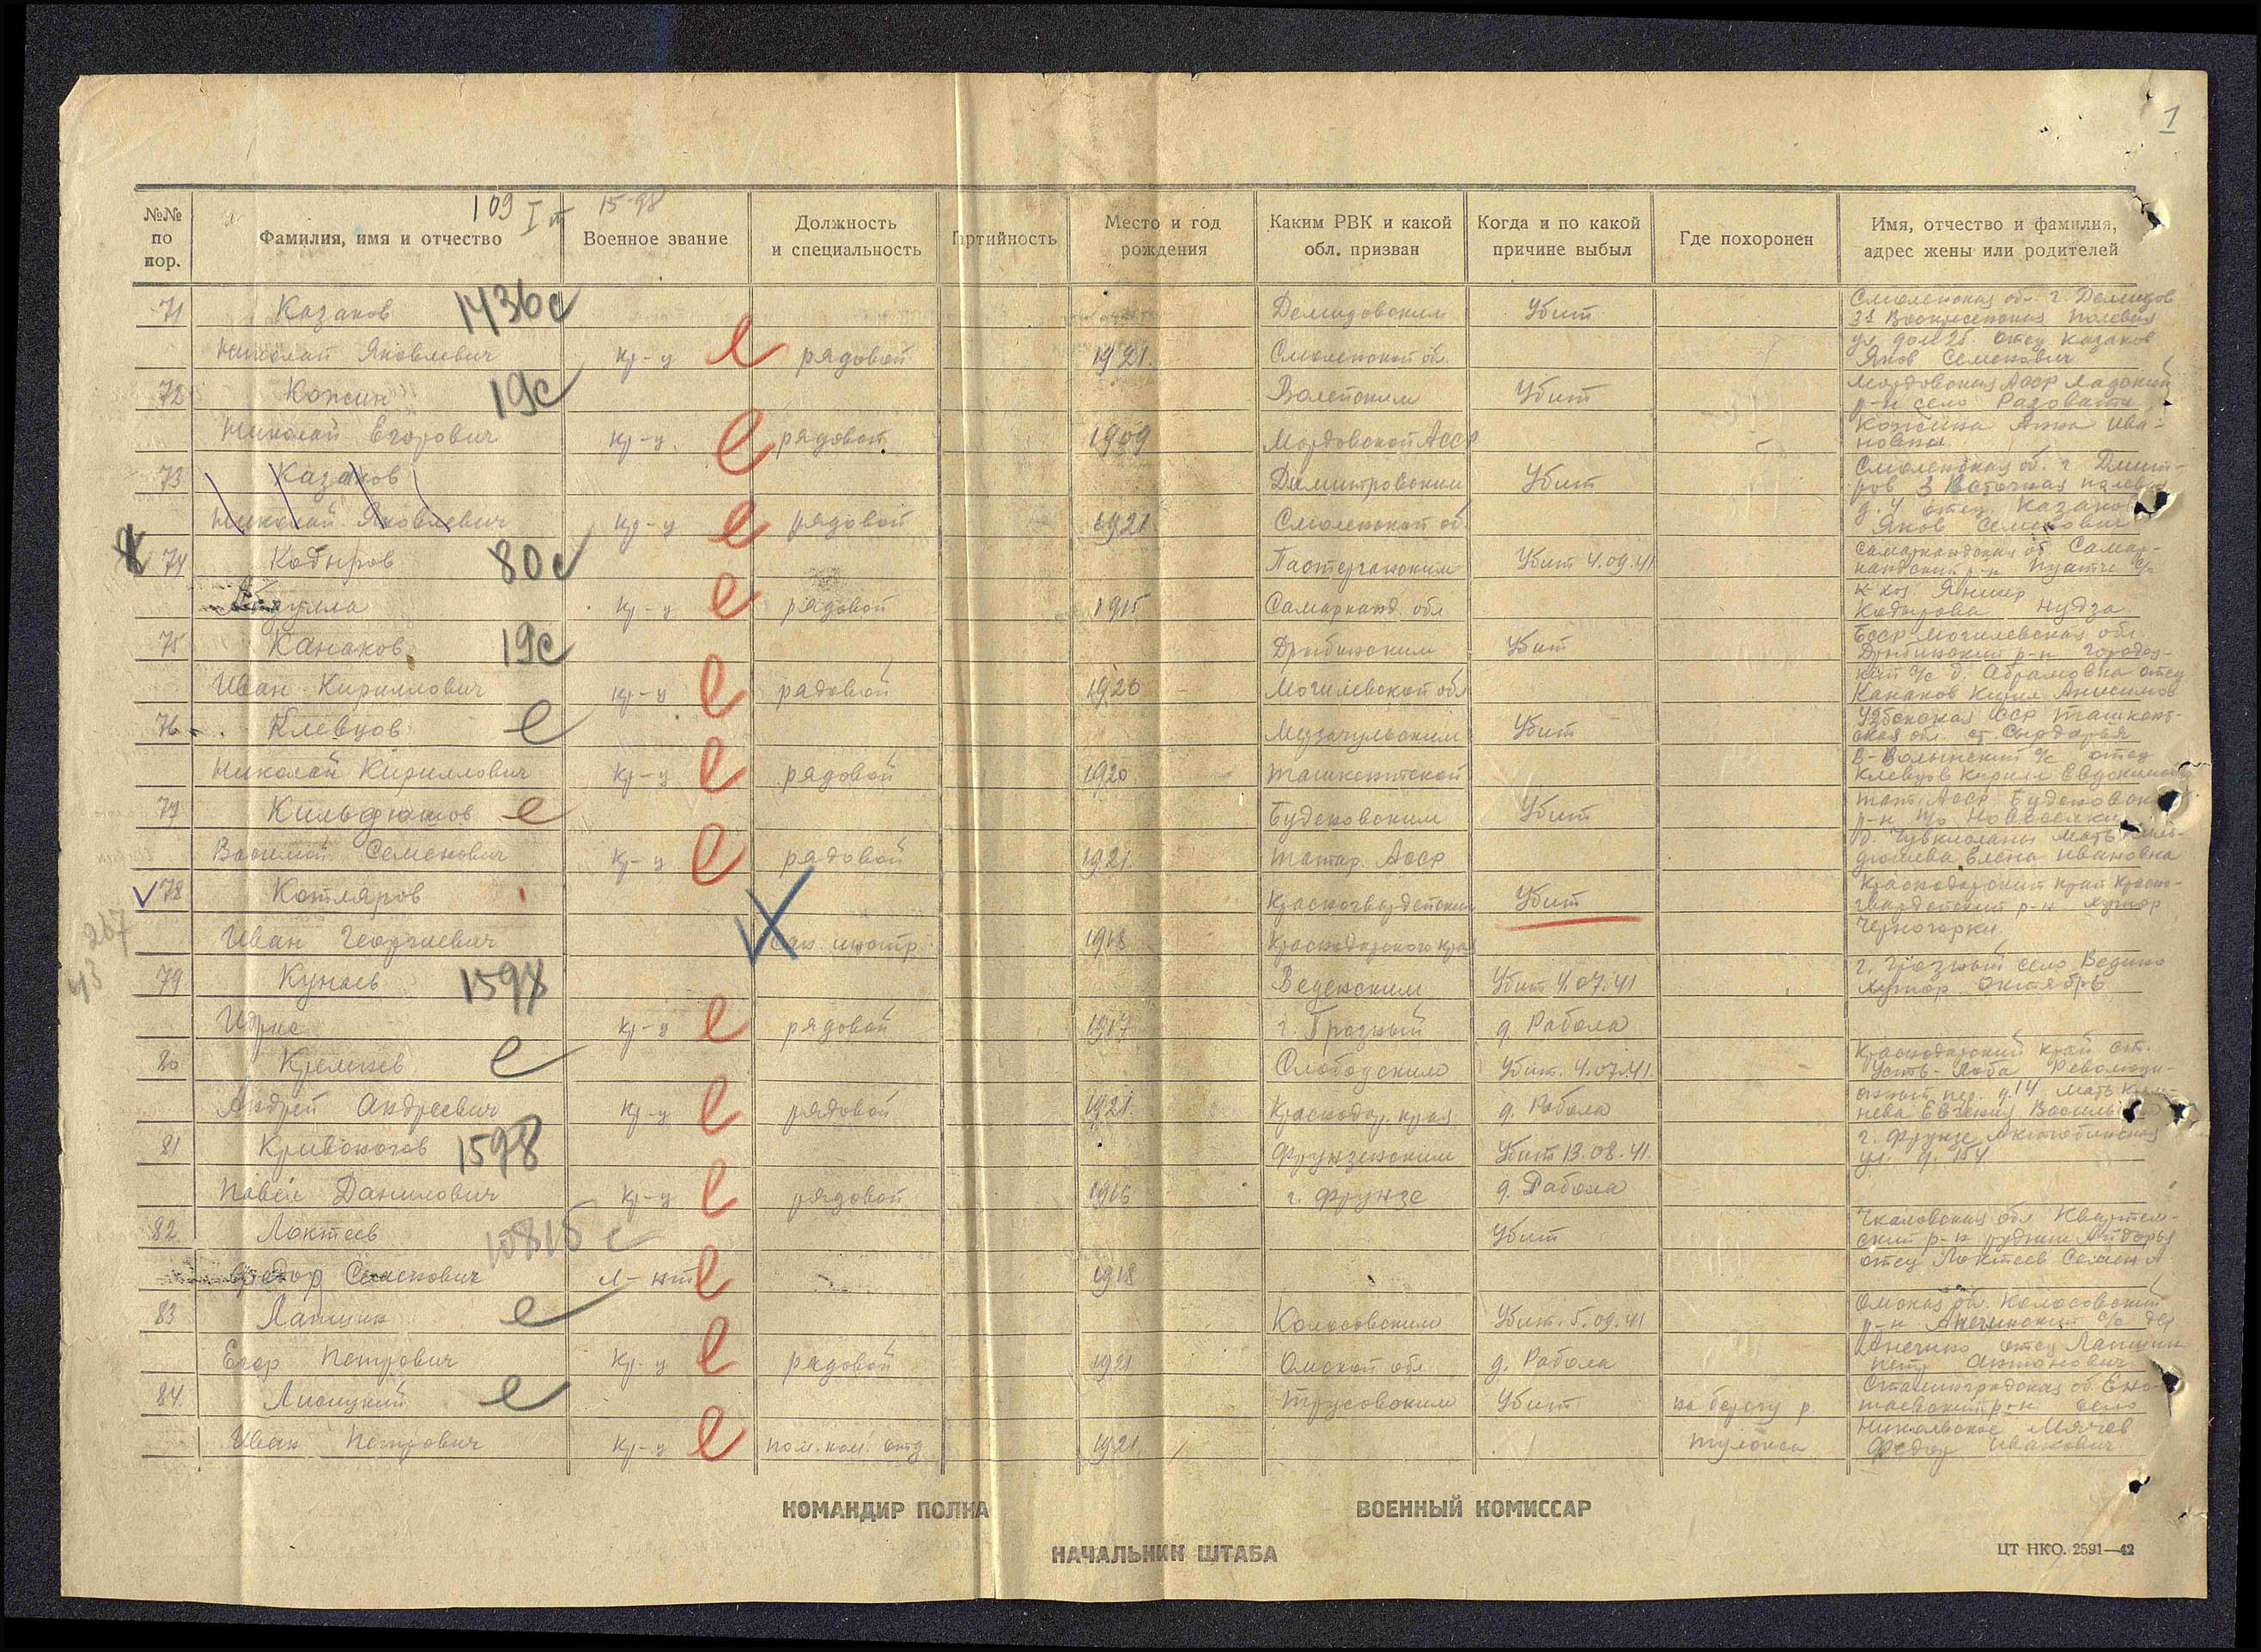 1
109 I
15-98
№№ по пор.
Фамилия, имя и отчество
Военное звание
Должность и специальность
Партийность
Место и год рождения
Каким РВК и какой обл. призван
Когда и по какой причине выбыл
Где похоронен
Имя, отчество и фамилия, адрес жены или родителей
71 Казаков 1436с Демидовским Убит Смоленская обл г. Демидов
Николай Яковлевич кр-ц рядовой 1921. Смоленской обл. ул дом 25 отец Казаков
Яков Семенович
72 Кожин 19с Убит Мордовская Асср Ладский
р-н село
Николай Егорович кр-ц. рядовой 1909 Мордовской Асср Кожина Анна Ива-
новна
73 Казаков Димитровским Убит Смоленская об. г. Дмит-
ров 3
Николай Яковлевич кр-ц рядовой 1921 Смоленской об д. 4 отец Казаков
Яков Семенович
74 Кадыров 80с Убит 4.09.41 Самаркандская об Самар-
кандский р-н
Абдулла кр-ц рядовой 1915 Самарканд. обл к-хоз
Кадырова
75 Канаков 19с Дрибинским Убит Бсср Могилевская обл
Дрибинский р-н
Иван Кириллович кр-ц рядовой 1920 Могилевской обл с/с д. Абрамовка отец
Канаков Кирил Анисимов
76 Клевцов Убит Узбекская сср Ташкент-
ская обл. ст. Сырдарья
Николай Кириллович кр-ц рядовой 1920 Ташкентской с/с отец
Клевцов Кирилл Евдокимов
77 Кильдюшов Буденовским Убит Тат. Асср Буденовский
р-н п/о
Василий Семенович кр-ц рядовой 1921. Татар. Асср мать Киль-
дюшева Елена Ивановна
78 Котляров Красногвардейским Убит Краснодарский край Красно-
гвардейский р-н хутор
267
43
Иван Георгиевич Сан. инстр. 1918 Краснодарского края Черногорки
79 Кунаев 1598 Веденским Убит 4.07.41 г. Грозный село Ведено
хутор Октябрь
Идрис кр-ц рядовой 1917 г. Грозный д. Рабола
80 Кремнев Слободским Убит. 4.07.41. Краснодарский край ст.
Усть-Лаба Революци-
Андрей Андреевич кр-ц рядовой 1921. Краснодар. края д. Рабола онный пер. д. 14 мать Крем-
нева Евгения Васильевна
81 Кривоногов 1598 Фрунзенским Убит 13.08.41. г. Фрунзе Актюбинская
ул. д. 154
Павел Данилович кр-ц рядовой 1916 г. Фрунзе д. Рабола
82 Локтеев 10815с Убит Чкаловская обл
р-н рудник
Федор Семенович л-нт 1918 отец Локтеев Семен
83 Лапшин Колосовским Убит. 5.09.41 Омская обл. Колосовский
р-н с/с дер
Егор Петрович кр-ц рядовой 1921 Омской обл д. Рабола отец Лапшин
Петр Антонович
84. Лисицкий Трусовским Убит на берегу р Сталинградская об. Ено-
таевский р-н село
Иван Петрович кр-ц пом. ком. отд 1921. Тулокса Никольское
Федор Иванович
КОМАНДИР ПОЛКА
ВОЕННЫЙ КОМИССАР
НАЧАЛЬНИК ШТАБА
ЦТ НКО. 2591—42